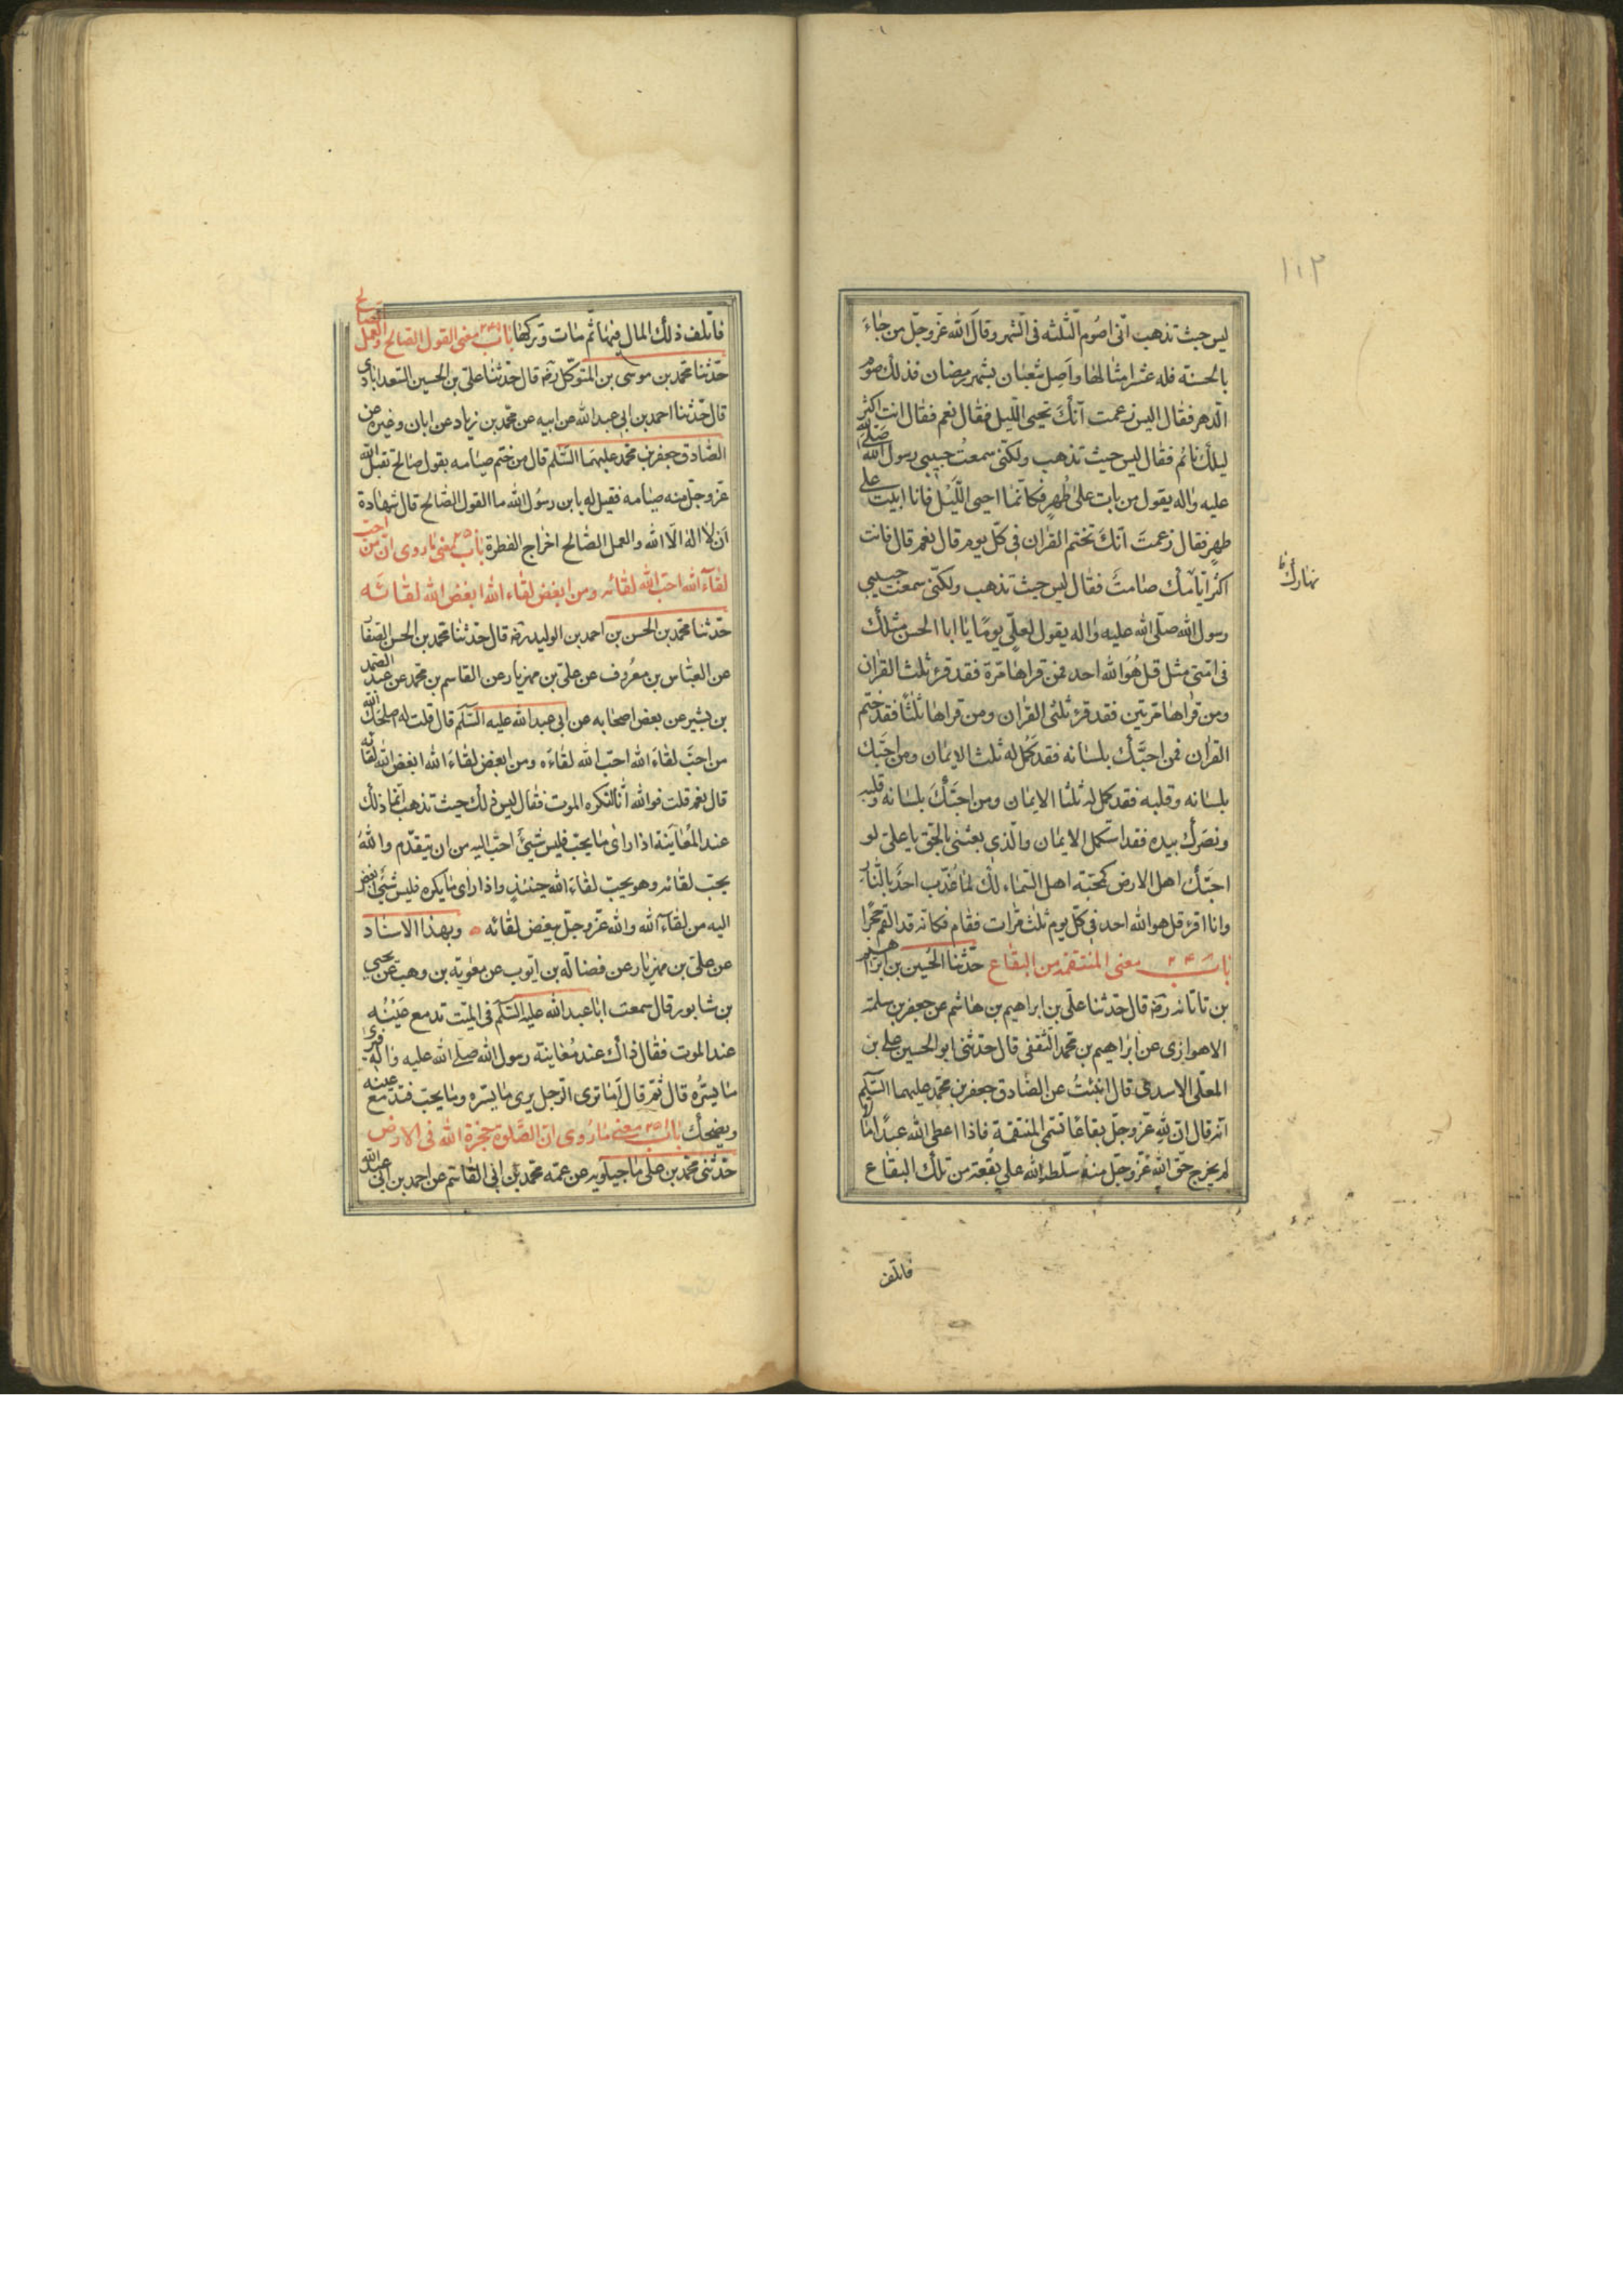 ١١٣
ليس حيث تذهب انّى اصُوم الثّلثه فى الشّهر وقالَ الله عزّ وجلّ من جٰاءَ
بالحسنة فله عشر امثٰالهٰا واَصِل شعبٰان بشهر رمضٰان فذلك صوم
الدّهر فقٰال اليس زعمت انّكَ تحيى اللّيل فقٰال نعم فقٰال انت اكثر
ليلك نٰائم فقٰال ليس حيث تذهب ولكنّى سمعتُ حبيبى رسول الله صلّى الله
عليه واٰله يقول من بات علىٰ طُهرٍ فكانّمٰا احيى اللّيل فانا ابيت على
طهرٍ فقٰال زعمتَ انّكَ تختم القراٰن فى كلّ يوم قٰال نعم قال فانت
اكثر ايّامك صٰامت فقٰال ليس حيث تذهب ولكنّى سمعت حبيبى
نهارك
رسول الله صلّى الله عليه واٰله يقول لعلىّ يومًا يٰا ابا الحسن مثلك
فى امّتى مثل قل هُوَ الله احد فمن قراهٰا مرّة فقد قرء ثلث القراٰن
ومن قراهٰا مرّتين فقد قرء ثلثى القراٰن ومن قراهٰا ثلٰثًا فقد ختم
القراٰن فمن احبَّك بلسٰانه فقد كمُل له ثلث الايمٰان ومن احبّك
بلسٰانه وقلبه فقد كمل له ثلثا الايمٰان ومن احبّكَ بلسٰانه وقلبه
ونصَرك بيده فقد استكمل الايمٰان والّذى بعثنى بالحقّ يا علىّ لو
احبّك اهل الارض كمحبّة اهل السّمٰاء لك لمٰا عُذّب احدٌ بالنّٰار
وانا اقرء قل هو الله احد فى كلّ يوم ثلث مرّات فقٰام فكانّه قد القم حجرًا
بٰاب ٢٤٨ معنى المنتقمة من البقٰاع حدّثنا الحُسين بن ابرٰاهيم
بن تاتٰانه رضه قال حدّثنا علىّ بن ابراهيم بن هٰاشم عن جعفر بن سلمة
الاهوازى عن ابرٰاهيم بن محمّد الثّقفى قال حدّثنى ابو الحسين على بن
المعلّى الاسدى قال انبئتُ عن الصّٰادق جعفر بن محمّد عليهما السّلم
انّه قال انّ للهِ عزّ وجلّ بقاعًا تسّمى المنتقمة فاذا اعطى الله عبدًا مٰالا
لم يخرج حقّ اللهِ عزّ وجلّ منه سلّطه الله على بقعة من تلك البقٰاع
فاتلف
فاتلف ذلك المال فيهٰا ثمّ مٰات وتركهٰا بٰاب ٢٤٩ معنى القول الصّالح والعمل الصٰالح
حدّثنا محمّد بن موسى بن المتوكّل رضه قال حدّثنا علىّ بن الحسين السّعدابٰادى
قال حدّثنا احمد بن ابى عبد الله عن ابيه عن محمّد بن زيٰاد عن ابان وغيره عن
الصّٰادق جعفر بن محمّد عليهما السّلم قال من ختم صيٰامه بقول صٰالح تقبل الله
عزّ وجلّ منه صيٰامه فقيل له يا بن رسُول الله ما القول الصّٰالح قال شهٰادة
اَن لا اله الّا الله والعمل الصّٰالح اخراج الفطرة بٰاب ٢٥٠ معنى مٰا روى انّ من احبّ
لقٰآء الله احبّ الله لقٰائه ومن ابغض لقٰاء الله ابغض الله لقٰائه
حدّثنا محمّد بن الحسن بن احمد بن الوليد رضه قال حدّثنا محمّد بن الحسن الصّفّا
عن العبّٰاس بن معرُوف عن علىّ بن مهزيٰار عن القاسم بن محمّد عن عبد الصّمد
بن بشير عن بعض اصحٰابه عن ابى عبد الله عليه السّلم قال قلت له اصلحك الله
من احبّ لقٰاءَ الله احبّ الله لقٰاءَه ومن ابغض لقٰاءَ الله ابغض الله لقٰائه
قال نعم قلت فوالله انّا لنكره الموت فقٰال ليس ذلك حيث تذهب انّمٰا ذلك
عند المُعٰاينة اذا راٰى مٰا يحبّ فليس شيئ احبّ اليه من ان يتقدّم والله
يحبّ لقٰائه وهو يحبّ لقٰاءَ الله حينئذٍ واذا راٰى مٰا يكره فليس شيئ ابغض
اليه من لقٰآء الله والله عزّ وجلّ يبغض لقٰائه ٥ وبهذا الاسنٰاد
عن علىّ بن مهزيٰار عن فضٰالة بن ايّوب عن معٰوية بن وهب عن يحيى
بن شٰابور قٰال سمعت ابٰا عبد الله عليه السّلم فى الميّت تدمع عَيْنُه
عند الموت فقٰال ذاك عند مُعٰاينة رسول الله صلّى الله عليه واٰله فيرى
مٰا يسُرُّه قال ثمّ قال اَمٰا ترى الرّجل يرى مٰا يسّره ومٰا يحبّ فتدمع عينه
ويضحك بٰاب ٢٥١ معنى مٰا رُوى انّ الصّلوة حجزة الله فى الارض
حدّثنى محمّد بن على مٰاجيلويه عن عمّه محمّد بن ابى القٰاسم عن احمد بن ابى عبد الله